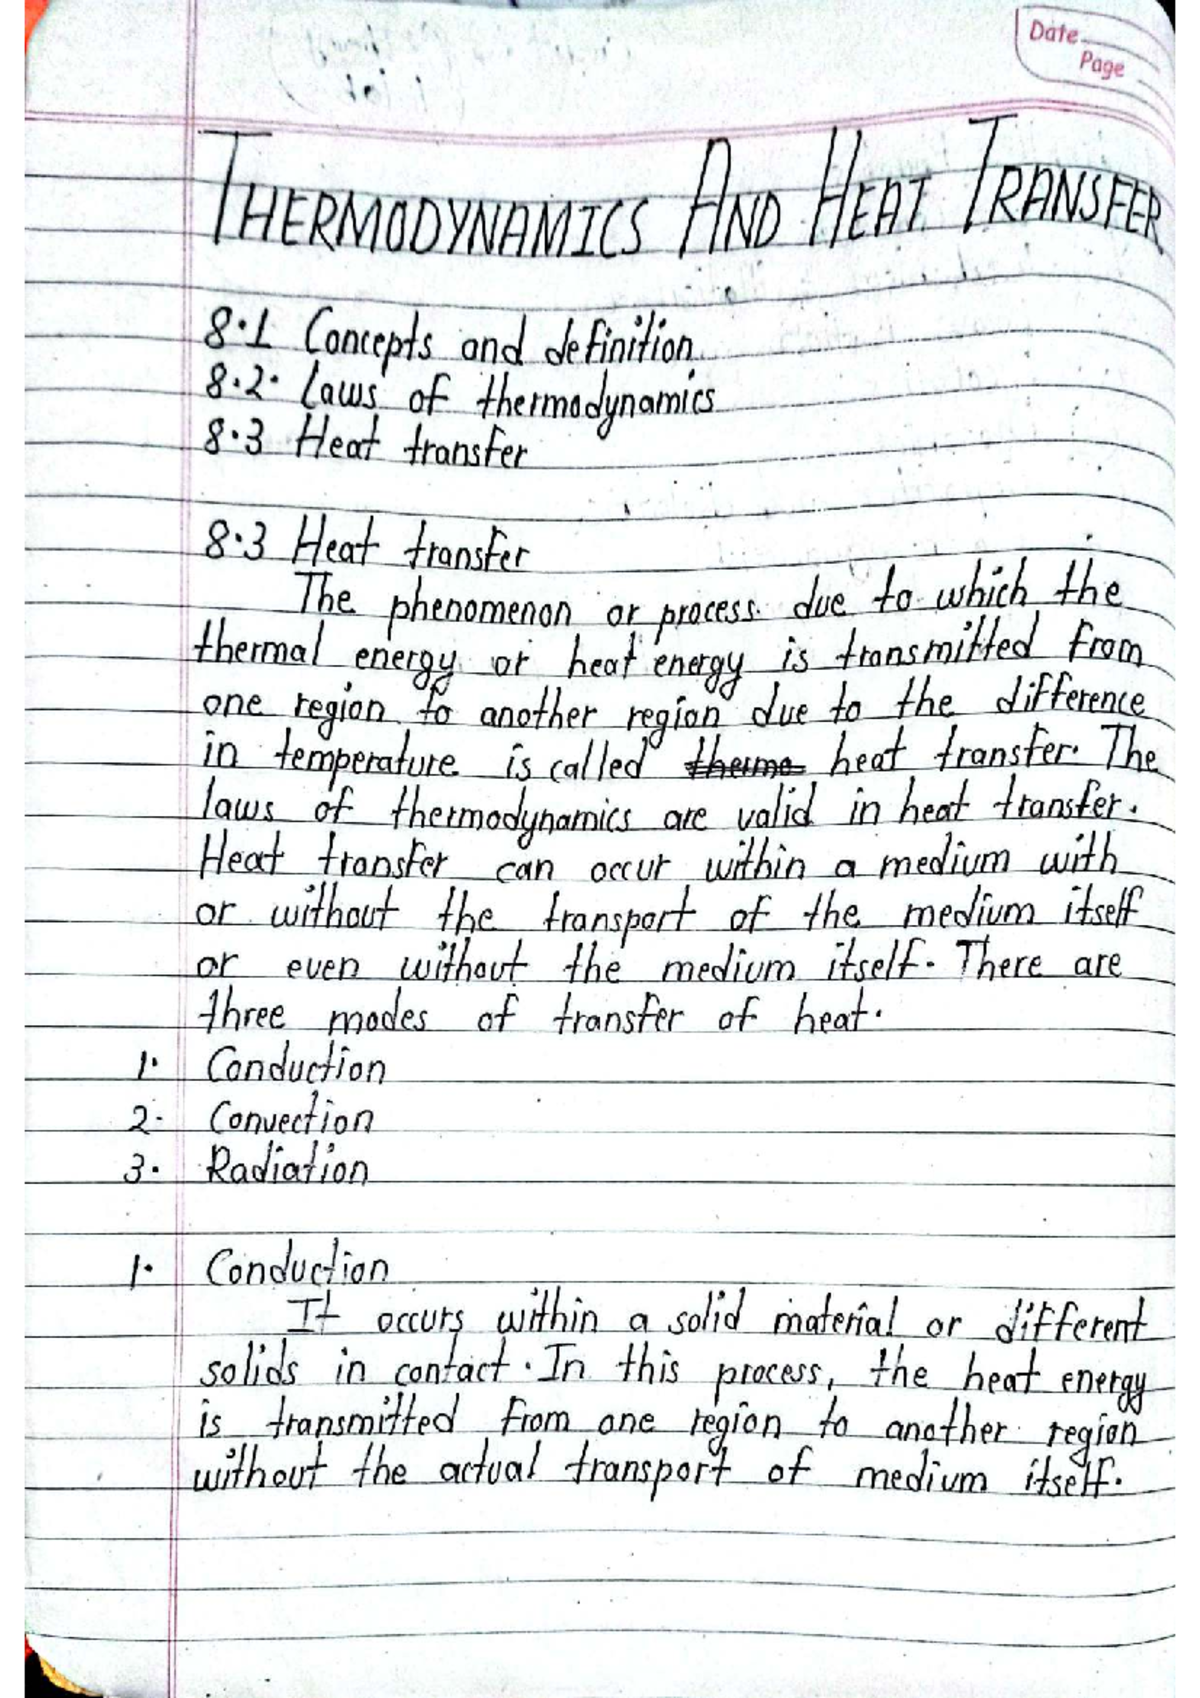 Date
Page
THERMODYNAMICS AND HEAT TRANSFER
8.1 Concepts and definition
8.2. Laws of thermodynamics
8.3 Heat transfer
8.3 Heat transfer
The phenomenon or process due to which the
thermal energy or heat energy is transmitted from
one region to another region due to the difference
in temperature is called thermo heat transfer. The
laws of thermodynamics are valid in heat transfer.
Heat transfer can occur within a medium with
or without the transport of the medium itself
or even without the medium itself. There are
three modes of transfer of heat.
1. Conduction
2. Convection
3. Radiation
1. Conduction
It occurs within a solid material or different
solids in contact. In this process, the heat energy
is transmitted from one region to another region
without the actual transport of medium itself.